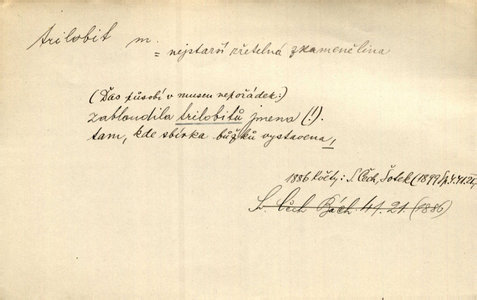 trilobit m.
= nejstarší zřetelná zkamenělina
(Ďas působí v museu nepořádek:)
zabloudila trilobitů jmena (!).
tam, kde sbírka bůžků vystavena,
1886 Květy: S. Čech, Šotek (1899 Sp.
S. Čech Bách 41. 21. (1886)